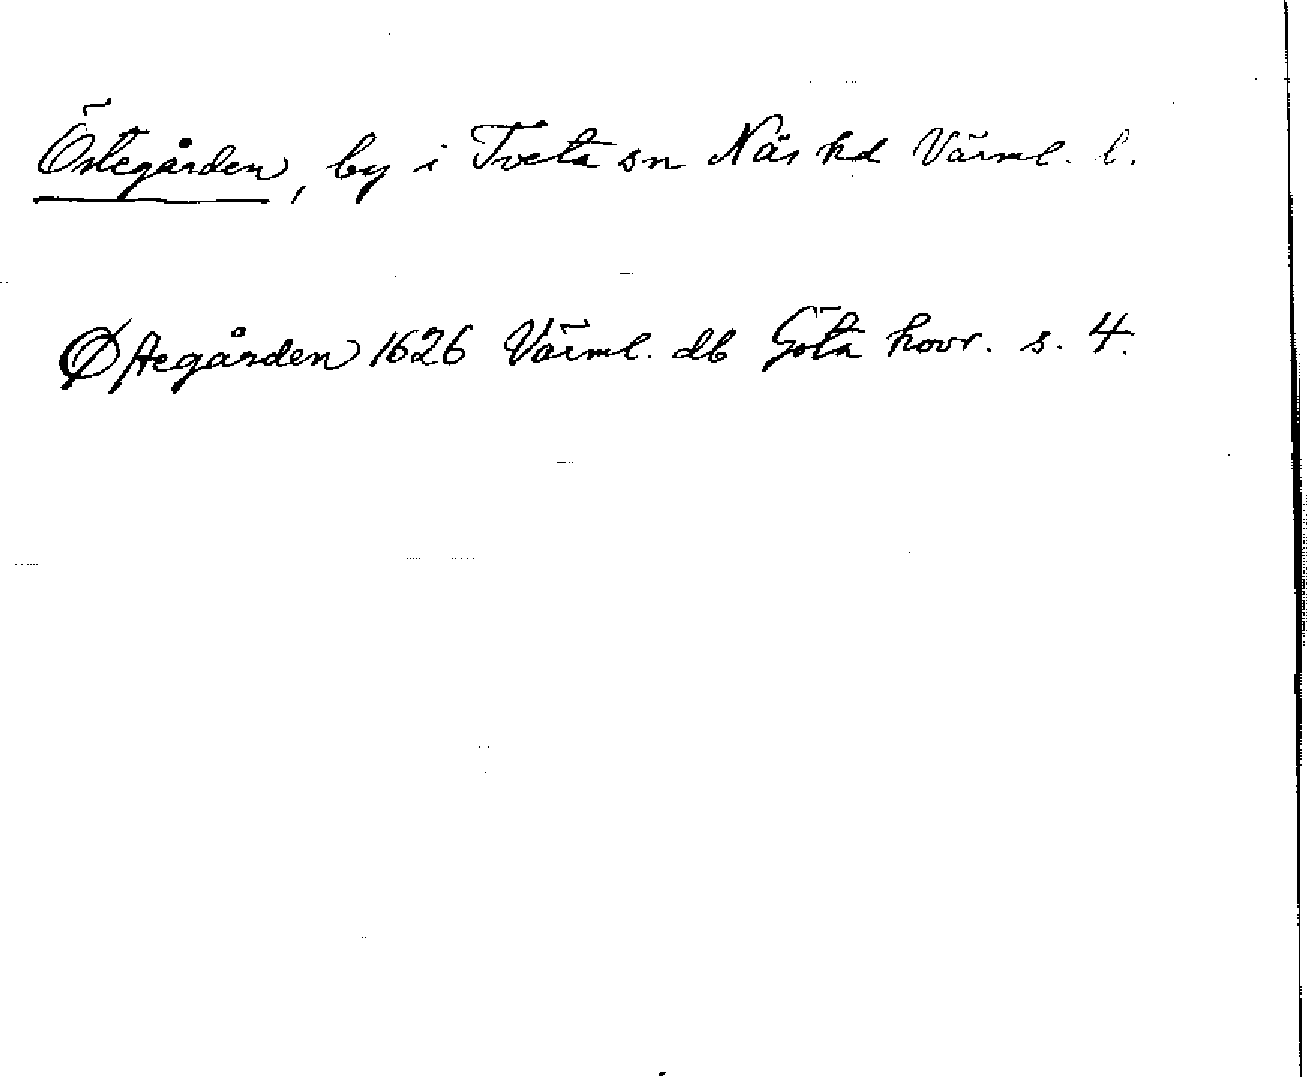 Östegården, by i Tveta sn Näs hd Värml. l.
Østegården 1626 Värml. db Göta hovr. s. 4.